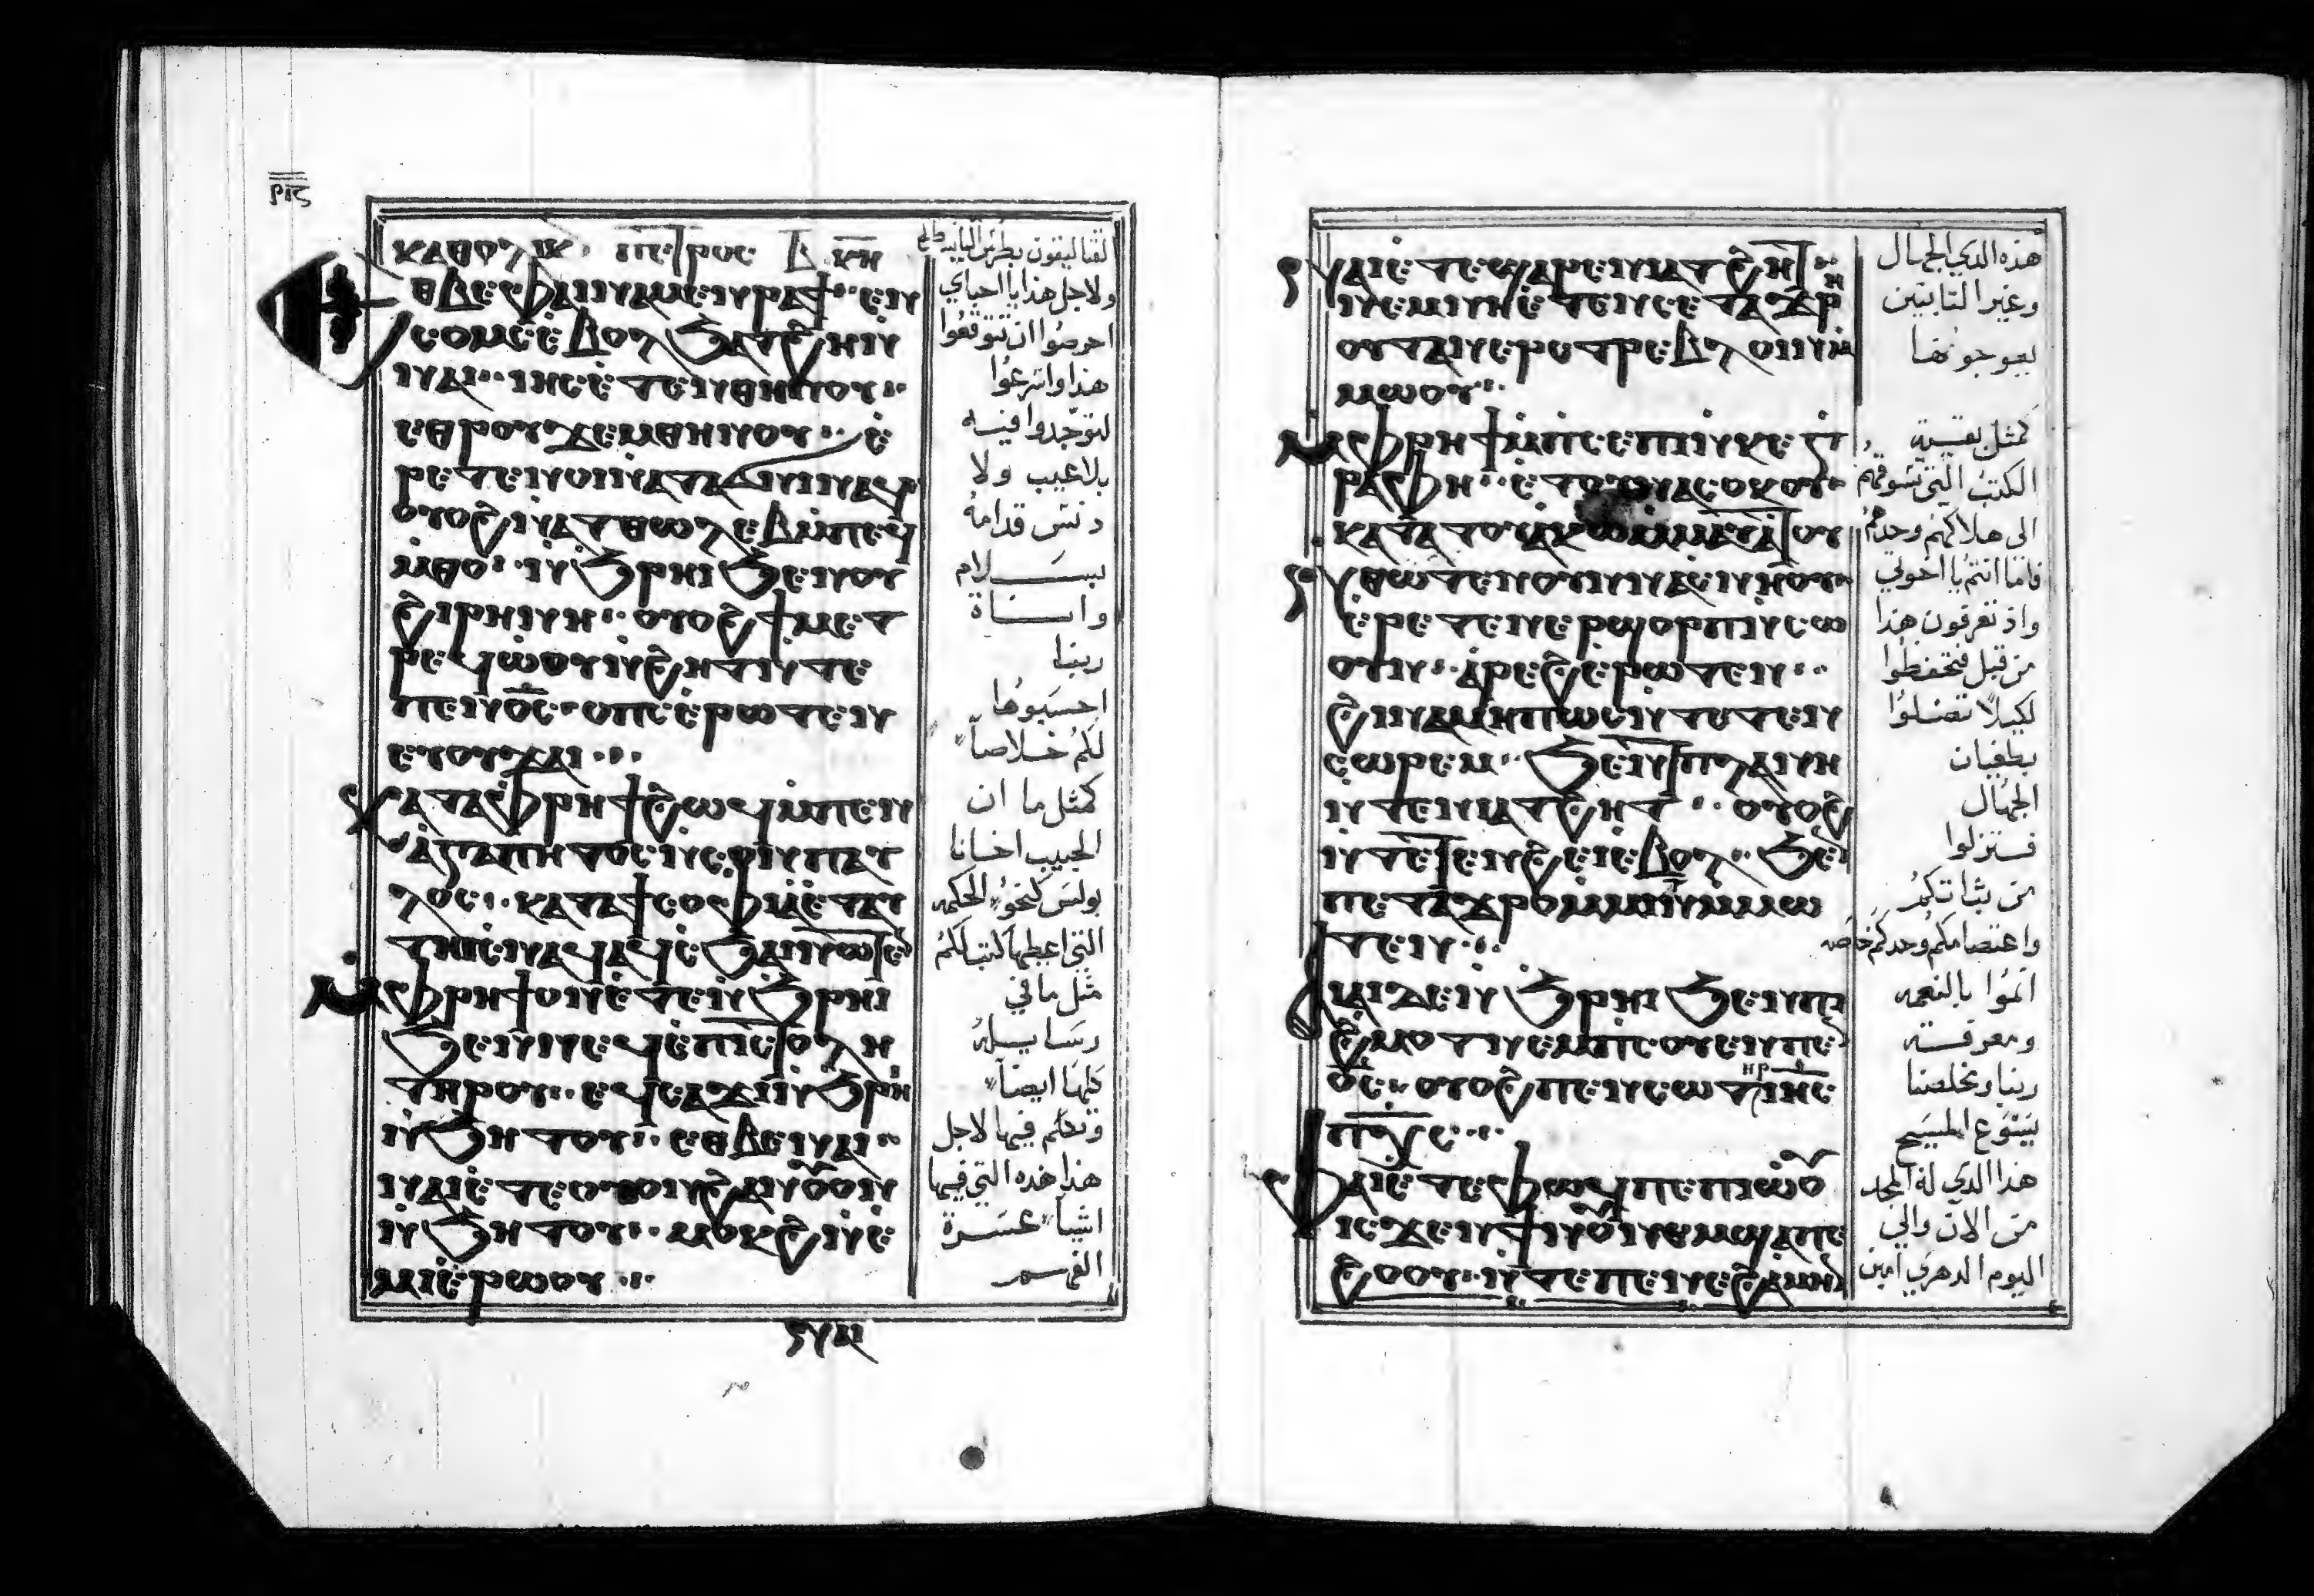 ⲣⲓⲋ
ⲕⲁⲑⲟⲗⲓⲕ · ⲡⲉⲧⲣⲟⲥ ⲃ̅ ⲕⲏ
ⲉⲑⲃⲉⲫⲁⲓⲛⲁⲙⲉⲛⲣⲁϯ·· ⲉⲛ
ⲥⲟⲙⲥⲉ̀ⲃⲟⲗϧⲁⲧϩⲏⲛ̀
ⲛⲁⲓ·· ⲓⲏⲥⲉ̀ⲧⲉⲛⲑⲏⲛⲟⲩ··
ⲉⲑⲣⲟⲩϫⲉⲙⲑⲏⲛⲟⲩ·· ⲉ̀
ⲣⲉⲧⲉⲛⲟⲓⲛ̀ⲁⲧⲁϭⲛⲓⲛⲁϥ
ⲟⲩⲟϩⲛ̀ⲁⲧⲑⲱⲗⲉⲃⲙ̀ⲡⲉϥ
ⲙ̀ⲑⲟ·· ⲛ̀ϧⲣⲏⲓϧⲉⲛⲟⲩ
ϩⲓⲣⲏⲛⲏ·· ⲟⲩⲟϩϯⲙⲉⲧ
ⲣⲉϥⲱ̀ⲟⲩⲛ̀ϩⲏⲧⲛ̀ⲧⲉ
ⲡⲉⲛⲟ̅ⲥ̅·· ⲟⲡⲥⲉ̀ⲣⲱⲧⲉⲛ
ⲉⲩⲟⲩϫⲁⲓ···
ⲕⲁⲧⲁⲫⲣⲏϯϩⲱϥⲙ̀ⲡⲉⲛ
ⲁ̀ⲅⲁⲡⲏⲧⲟⲥⲛ̀ⲥⲟⲛⲡⲁⲩ
ⲗⲟⲥ·· ⲕⲁⲧⲁϯⲥⲟⲫⲓⲁⲉ̀ⲧⲁⲩ
ⲧⲏⲓⲥⲛⲁϥⲁϥⲥ̀ϧⲁⲓⲛⲱⲧⲉⲛ
ⲙ̀ⲫⲣⲏϯⲟⲛⲉ̀ⲧⲉⲛ̀ϧⲣⲏⲓ
ϧⲉⲛⲛⲉϥⲉ̀ⲡⲓⲥⲧⲟⲗⲏ
ⲧⲏⲣⲟⲩ·· ⲉϥⲥⲁϫⲓⲛ̀ϧⲣⲏⲓ
ⲛ̀ϧⲏⲧⲟⲩ·· ⲉⲑⲃⲉⲛⲁⲓ··
ⲛⲁⲓⲉ̀ⲧⲉⲟⲩⲟⲛϩⲁⲛⲟ̀ⲩⲟⲛ
ⲛ̀ϧⲏⲧⲟⲩ·· ⲙⲟⲕϩⲛ̀ⲉ̀
ⲙⲓⲉ̀ⲣⲱⲟⲩ···
ⲛⲁⲓ
ولاجل هذا يا احباي
احرصوا ان تتوقعوا
هذا واسرعوا
لتوجدوا فيه
بلا عيب ولا
دنس قدامه
بسلام
واناة
ربنا
احسبوها
لكم خلاصاً
كمثل ما ان
الحبيب اخانا
بولس كنحو الحكمه
التي اعطيها كتب لكم
مثل ما في
رسايله
كلها ايضاً
وتكلم فيها لاجل
هذا هذه التي فيها
اشيآ عسرة
الفهم
ⲛⲁⲓⲉ̀ⲧⲉϣⲁⲣⲉⲛⲓⲁⲧϩⲏⲧ
ⲛⲉⲙⲛⲏⲉ̀ⲧⲉⲛⲥⲉⲧⲁϫⲣⲏ
ⲟⲩⲧⲁⲛⲉⲣⲥⲧⲣⲉⲃⲗⲟⲓⲛ̀
ⲙⲙⲱⲟⲩ··
ⲙ̀ⲫⲣⲏϯⲙ̀ⲡⲥⲉⲡⲓⲛ̀ⲕⲉⲅ̀
ⲣⲁⲫⲏ·· ⲉ̀ⲡⲟⲩⲧⲁⲕⲟ
ⲕⲁⲧⲁⲧⲟⲩⲁⲕⲱⲙ̀ⲙⲁⲩⲁⲧⲟⲩ
ⲛⲑⲱⲧⲉⲛⲟⲩⲛⲛⲁⲥⲛⲏⲟⲩ
ⲉ̀ⲣⲉⲧⲉⲛⲉⲣϣⲟⲣⲡⲛ̀ⲥⲱ
ⲟⲩⲛ·· ⲁ̀ⲣⲉϩⲉ̀ⲣⲱⲧⲉⲛ··
ϩⲓⲛⲁⲙⲏⲡⲱⲥⲛ̀ⲧⲉⲧⲉⲛ
ⲥⲱⲣⲉⲙ·· ϧⲉⲛϯⲡⲗⲁⲛⲏ
ⲛ̀ⲧⲉⲛⲓⲁⲧϩⲏⲧ·· ⲟⲩⲟϩ
ⲛ̀ⲧⲉⲧⲉⲛϩⲉⲓⲉ̀ⲃⲟⲗ·· ϧⲉⲛ
ⲡⲉⲧⲁϫⲣⲟⲙ̀ⲙⲓⲛⲙ̀ⲙⲱ
ⲧⲉⲛ···
ⲁⲓⲁⲓϫⲉⲛ̀ϧⲣⲏⲓϧⲉⲛⲡⲓ
ϩ̀ⲙⲟⲧⲛⲉⲙⲡⲥⲟⲩⲉⲛⲡⲉⲛ
ⲟ̅ⲥ̅·· ⲟⲩⲟϩⲡⲉⲛⲥⲱⲧⲏⲣⲓⲏⲥ
ⲡⲭ̅ⲥ̅···
ⲫⲁⲓⲉ̀ⲧⲉⲫⲱϥⲡⲉⲡⲓⲱ̀ⲟⲩ
ⲓⲥϫⲉⲛϯⲛⲟⲩⲛⲉⲙϣⲁⲡⲓⲉ̀
ϩⲟⲟⲩ·· ⲛ̀ⲧⲉⲡⲉⲛⲉϩⲁ̀ⲙⲏⲛ
هذه الذي الجهال
وغير الثابتين
يعوجونها
كمثل بقية
الكتب التي تسوقهم
الى هلاكهم وحدهم
فاما انتم يا اخوتي
واذ تعرفون هذا
من قبل فتحفظوا
لكيلا تضلوا
بطغيان
الجهال
فستزلوا
من ثباتكم
واعتصامكم وحدكم خاصه
انموا بالنعمه
ومعرفة
ربنا ومخلصنا
يسوع المسيح
هذا الذي له المجد
من الان والي
اليوم الدهري امين